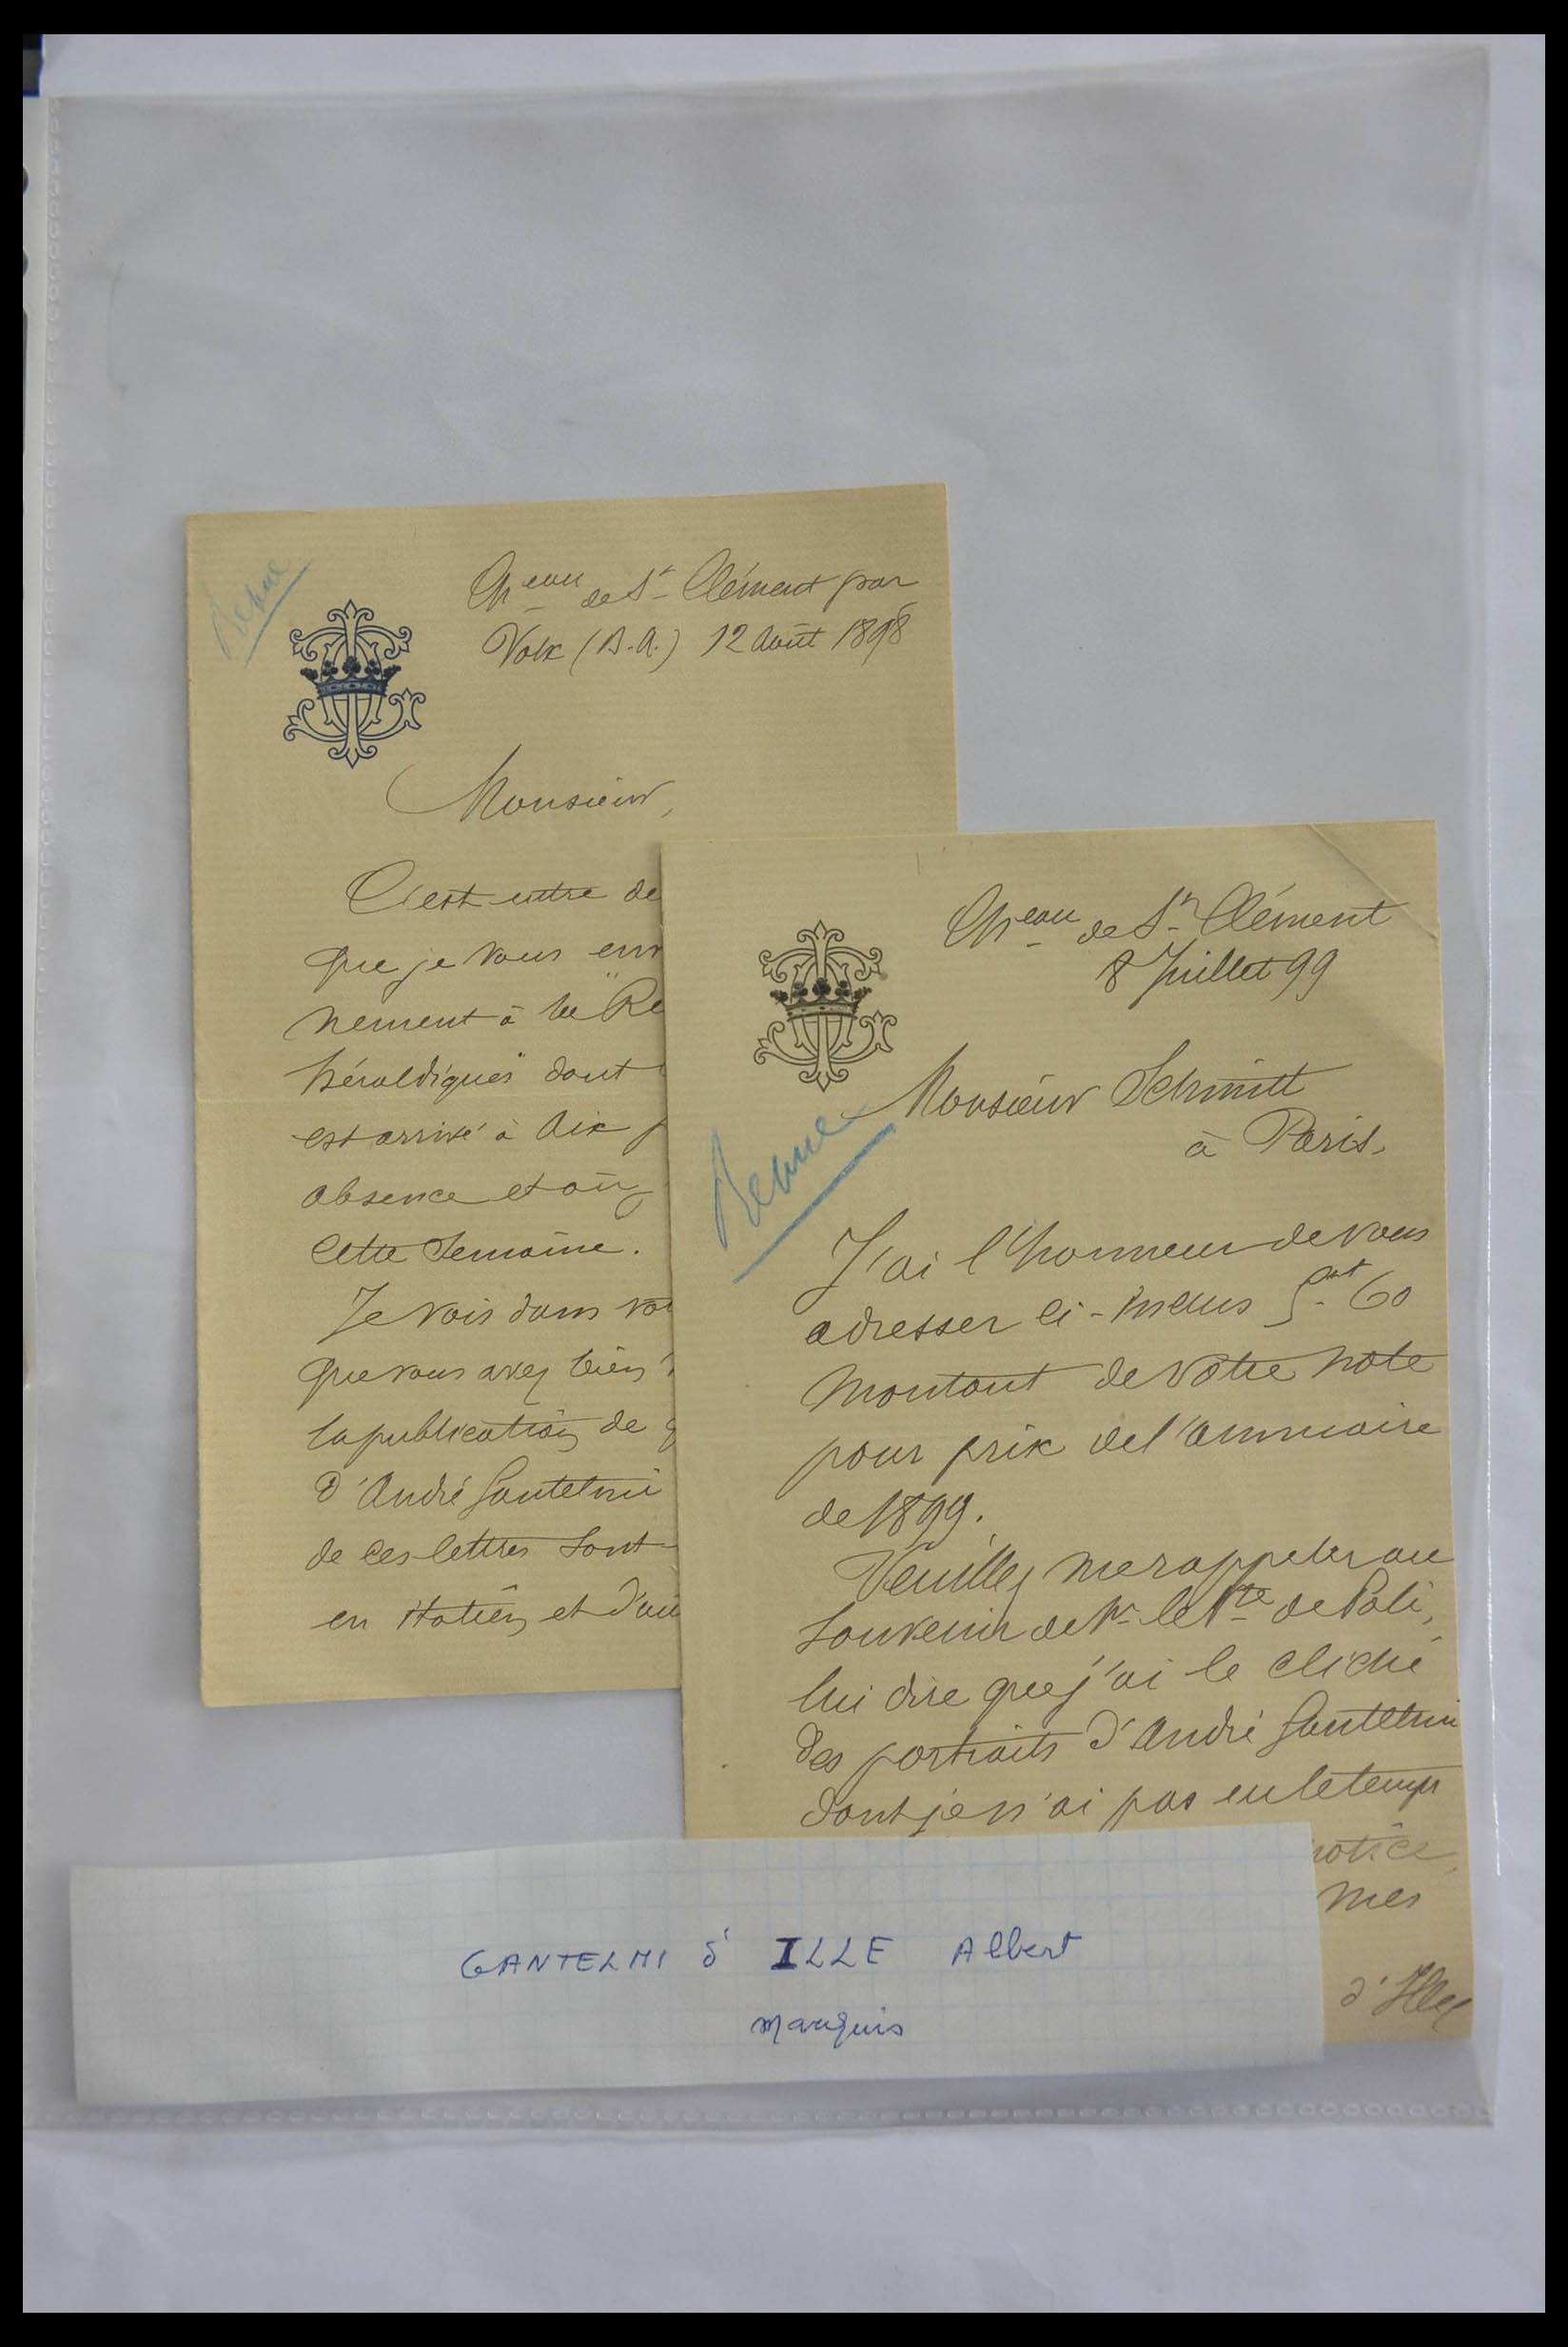 Revue
Ch^eau de S^t Clément par
Volx (B.A.) 12 Août 1898
Monsieur,
C'est
que je vous env
nement à la "Re
héraldiques" dont
est arrivé à Aix p
absence et où
cette Semaine.
Je vois dans vo
que vous avez bien
la publication de q
d'André Gantelmi
de ces lettres sont
en Italien, et d'au
Ch^eau de S^t Clément
8 Juillet 99
Monsieur Schmitt
à Paris.
Revue
J'ai l'honneur de vous
adresser ci-inclus 5 60
montant de votre note
pour prix de l'annuaire
de 1899.
Veuillez me rappeler au
souvenir de Mr le Vte de Poli,
lui dire que j'ai le cliché
des portraits d'André Gantelmi
dont je n'ai pas eu le temps
notice,
mes
d'Ille
GANTELMI d' ILLE Albert
marquis